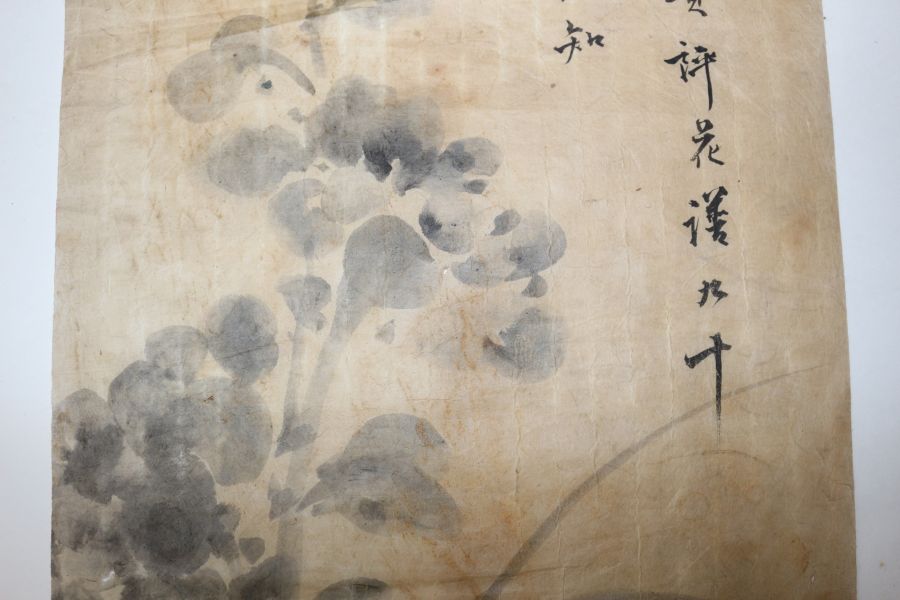 評花譜九十
知